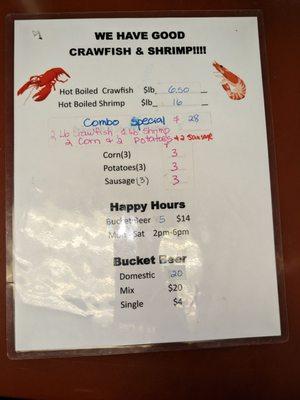 WE HAVE GOOD
CRAWFISH & SHRIMP!!!!
Hot Boiled Crawfish $lb 6.50
Hot Boiled Shrimp $lb 16
Combo Special $ 28
2 lb Crawfish, 1 lb Shrimp
2 Corn & 2 Potatoes & 2 Sausage
Corn(3) 3
Potatoes(3) 3
Sausage(3) 3
Happy Hours
Bucket Beer 5 $14
Mon Sat 2pm-6pm
Bucket Beer
Domestic 20
Mix $20
Single $4